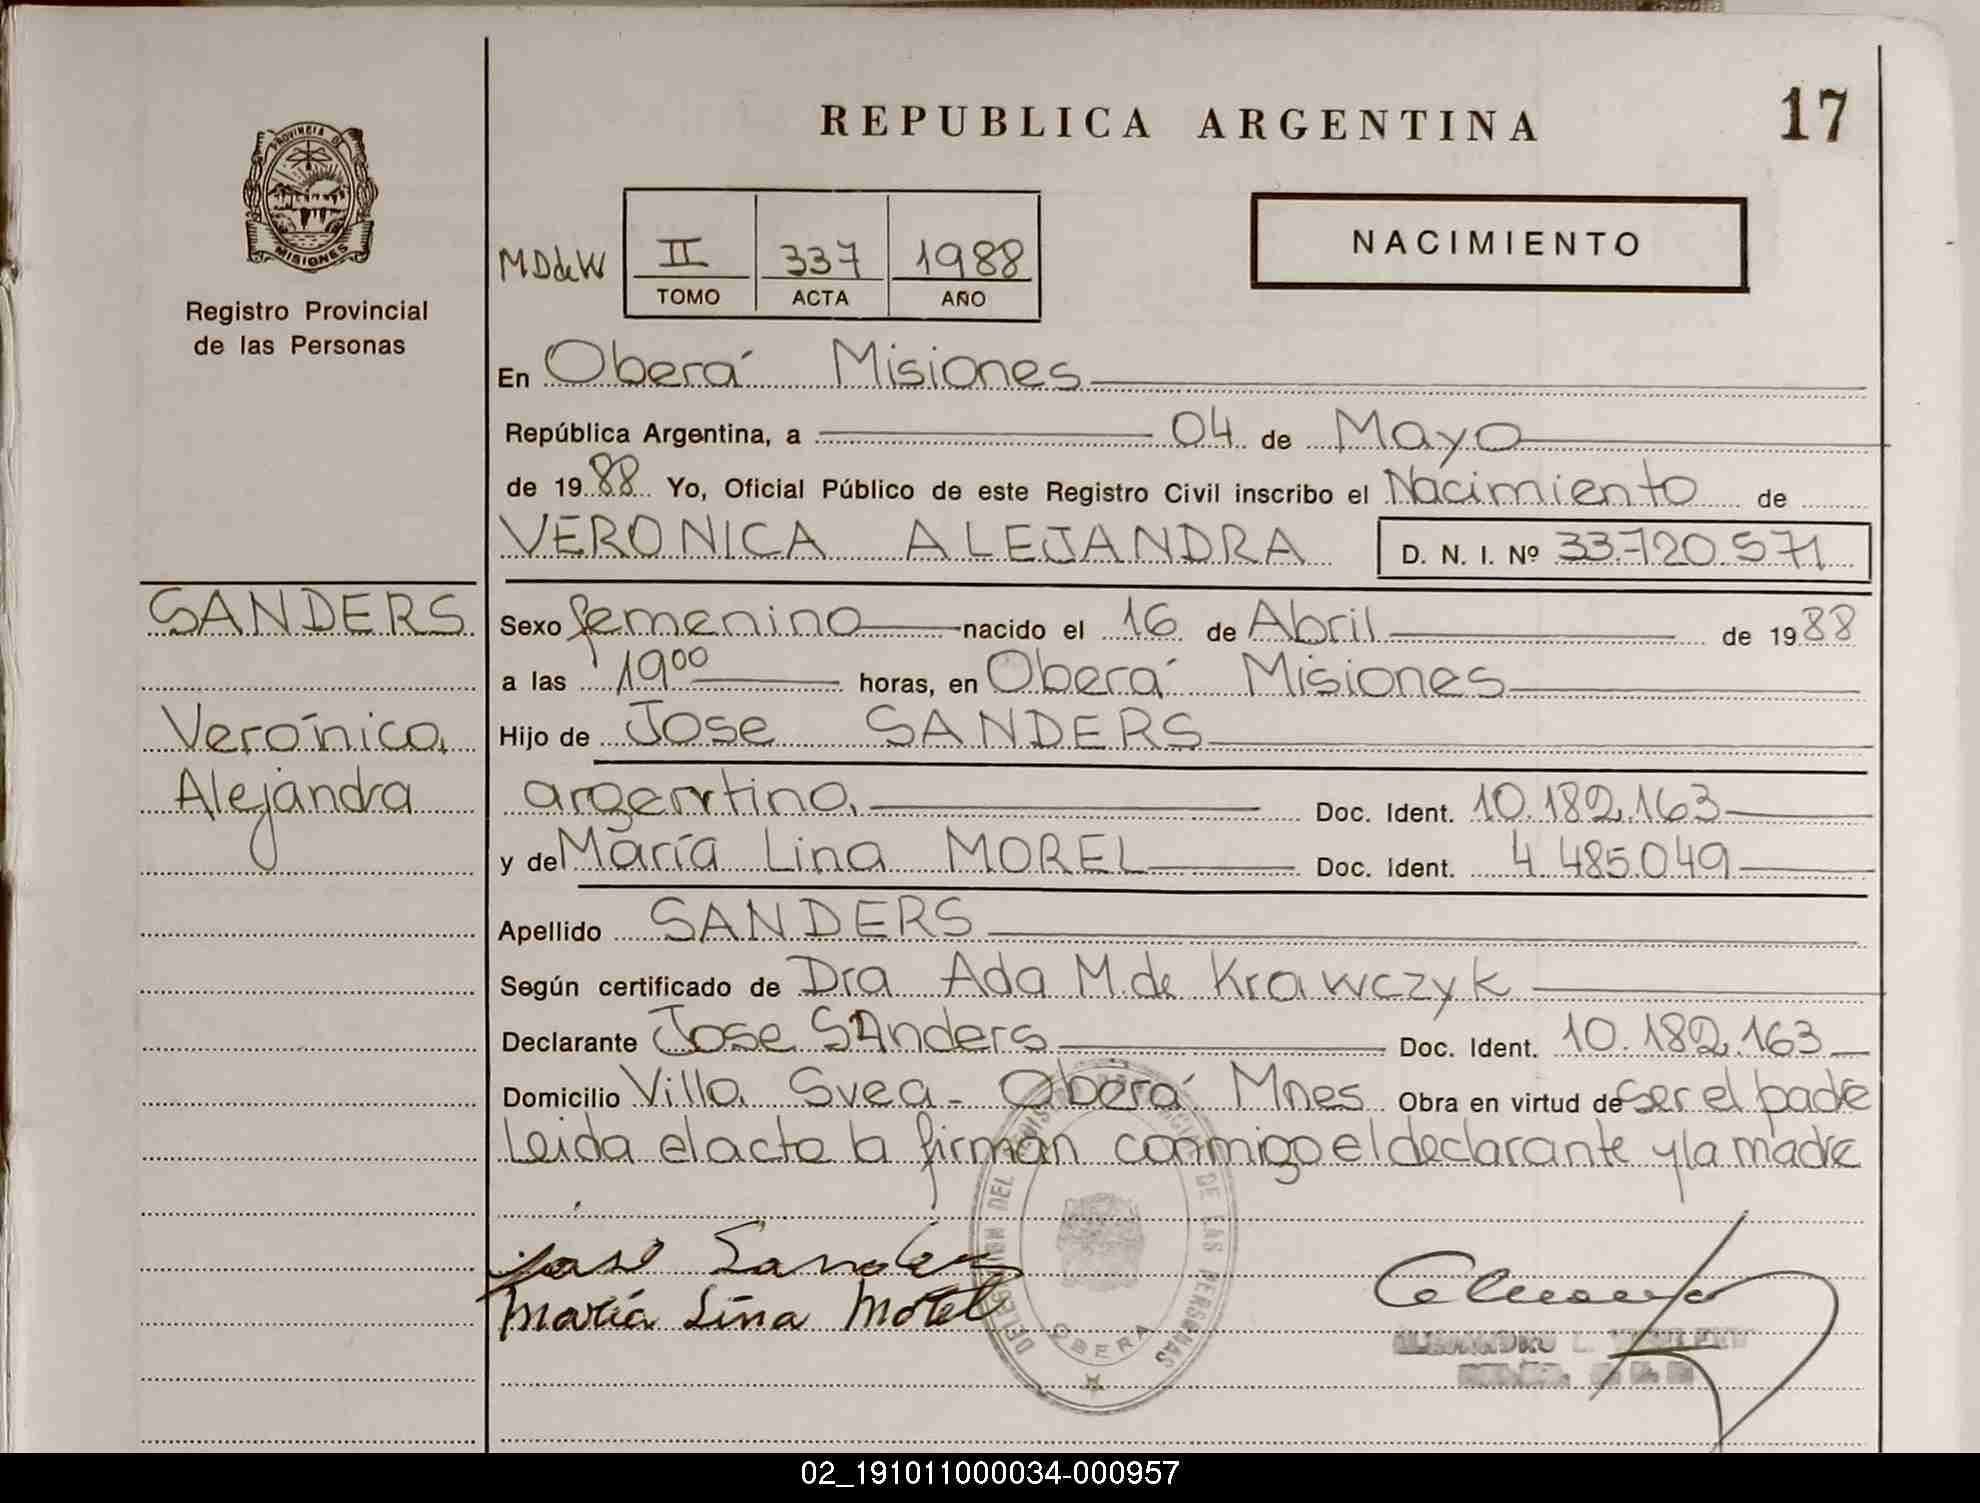 REPUBLICA ARGENTINA
17
PROVINCIA DE
MISIONES
Registro Provincial
de las Personas
MDdeW
II 337 1988
TOMO ACTA AÑO
NACIMIENTO
En Oberá Misiones
República Argentina, a 04 de Mayo
de 1988 Yo, Oficial Público de este Registro Civil inscribo el Nacimiento de
VERONICA ALEJANDRA D. N. I. Nº 33.720.571
SANDERS
Verónica
Alejandra
Sexo femenino nacido el 16 de Abril de 1988
a las 19⁰⁰ horas, en Oberá Misiones
Hijo de Jose SANDERS
argentina Doc. Ident. 10.182.163
y de María Lina MOREL Doc. Ident. 4.485.049
Apellido SANDERS
Según certificado de Dra Ada M. de Krawczyk
Declarante Jose SAnders Doc. Ident. 10.182.163
Domicilio Villa Svea - Oberá Mnes Obra en virtud de ser el padre
Leida el acta la firman conmigo el declarante y la madre
José Sanders
María Lina Morel
DELEGACION DEL REGISTRO PROVINCIAL DE LAS PERSONAS
OBERA
02_191011000034-000957